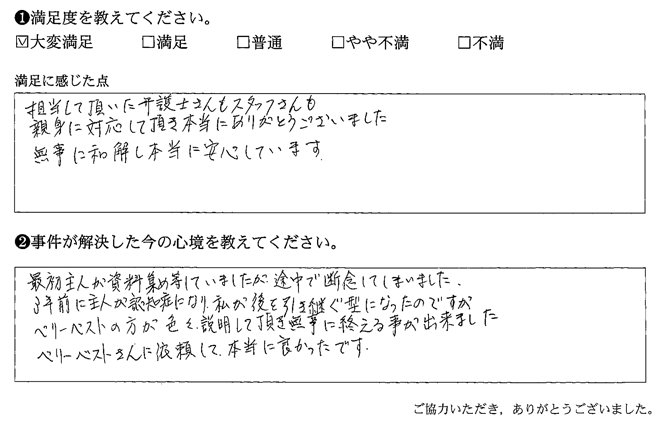 ❶満足度を教えてください。
☑大変満足 □満足 □普通 □やや不満 □不満
満足に感じた点
担当して頂いた弁護士さんもスタッフさんも
親身に対応して頂き本当にありがとうございました
無事に和解し本当に安心しています
❷事件が解決した今の心境を教えてください。
最初主人が資料集め等していましたが途中で断念してしまいました.
3年前に主人が認知症になり私が後を引き継ぐ型になったのですが
ベリーベストの方が色々説明して頂き無事に終える事が出来ました
ベリーベストさんに依頼して本当に良かったです.
ご協力いただき，ありがとうございました。